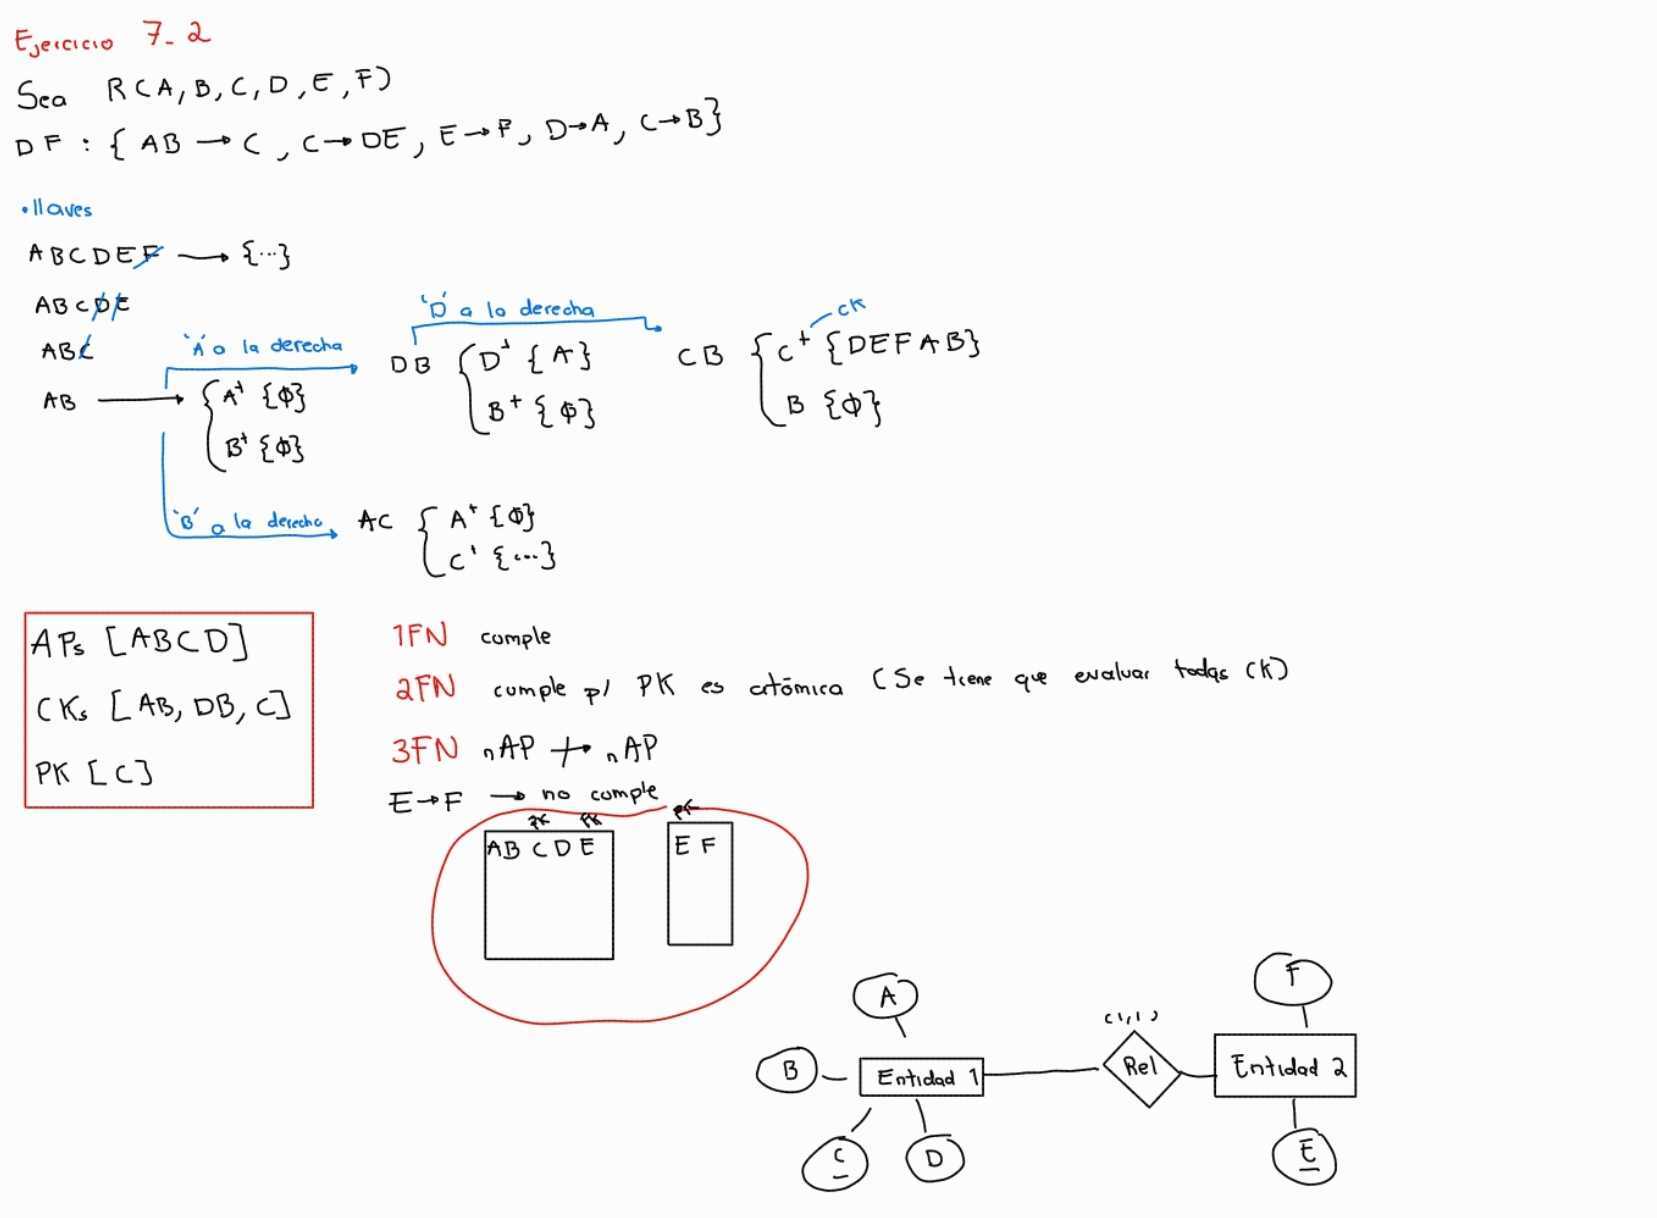 Ejercicio 7.2
Sea R(A, B, C, D, E, F)
DF : { AB → C, C → DE, E → F, D → A, C → B}
• llaves
ABCDEF → {...}
ABCDE
ABC
AB
'A' a la derecha
{ A⁺ {Φ}
B⁺ {Φ}
DB { D⁺ {A}
B⁺ {Φ}
'D' a la derecha
CB { C⁺ {DEFAB}
CK
B {Φ}
'B' a la derecha
AC { A⁺ {Φ}
C⁺ {...}
APs [ABCD]
CKs [AB, DB, C]
PK [C]
1FN cumple
2FN cumple p/ PK es atómica (Se tiene que evaluar todas CK)
3FN nAP ↛ nAP
E → F → no cumple
PK FK
AB C D E
PK
E F
A
B
Entidad 1
C
D
(1,1)
Rel
F
Entidad 2
E